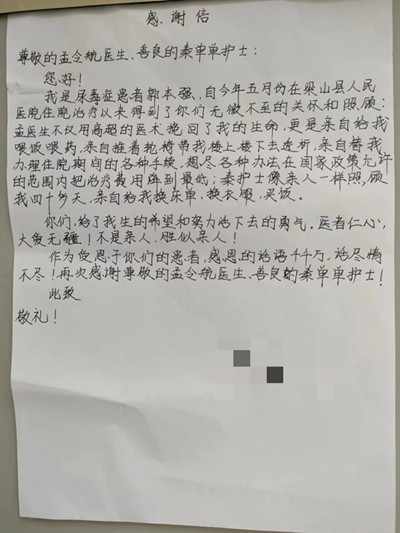 感谢信
尊敬的孟令航医生、善良的秦单单护士：
您好！
我是尿毒症患者郭本强，自今年五月份在梁山县人民
医院住院治疗以来得到了你们无微不至的关怀和照顾：
孟医生不仅用高超的医术挽回了我的生命，更是亲自给我
喂饭喂药，亲自推着轮椅带我楼上楼下去透析，亲自替我
办理住院期间的各种手续，想尽各种办法在国家政策允许
的范围内把治疗费用降到最低；秦护士像亲人一样照顾
我四十多天，亲自给我换床单，换衣服，买饭。
你们，给了我生的希望和努力活下去的勇气。医者仁心，
大爱无疆！不是亲人，胜似亲人！
作为受恩于你们的患者，感恩的话语千千万，话尽情
不尽！再次感谢尊敬的孟令航医生、善良的秦单单护士！
此致
敬礼！